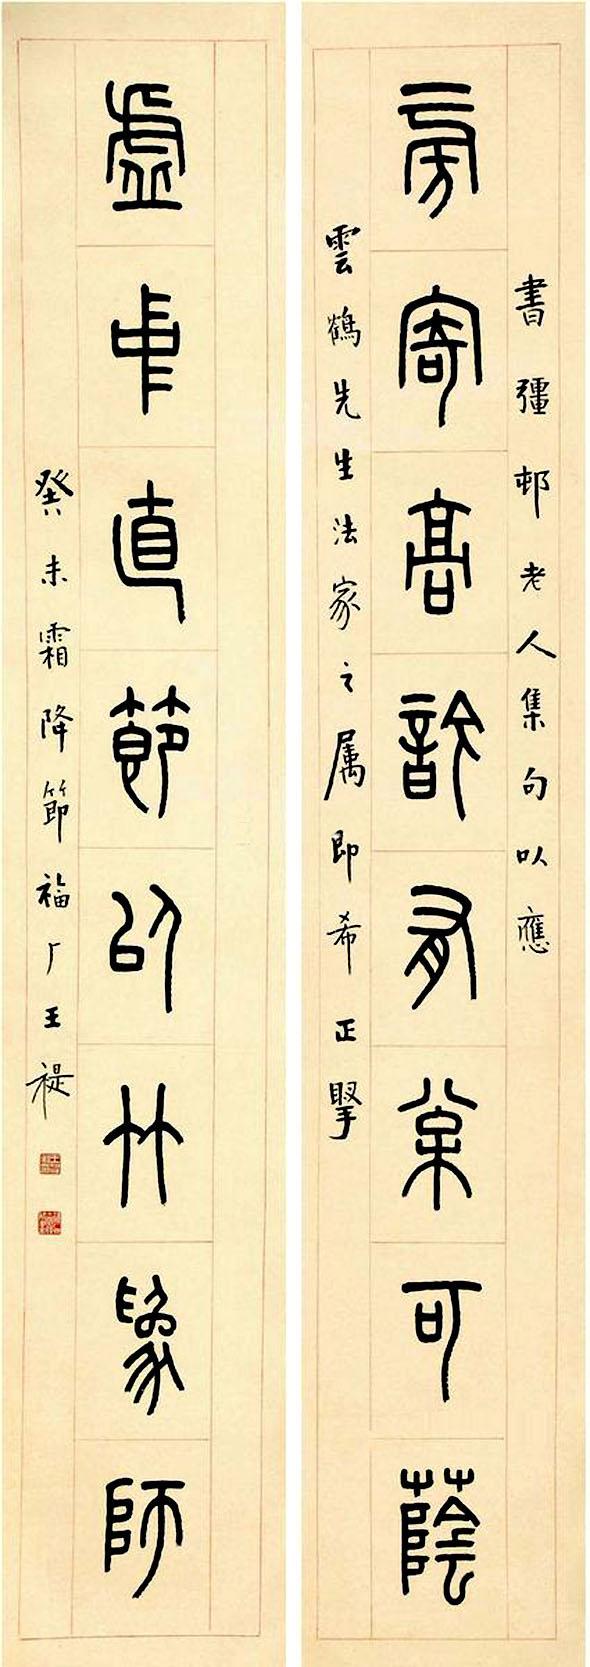 書彊邨老人集句以應
旁寄高詠有棠可蔭
雲鶴先生法家之属即希正掔
虛中直節以竹爲師
癸未霜降節福厂王禔